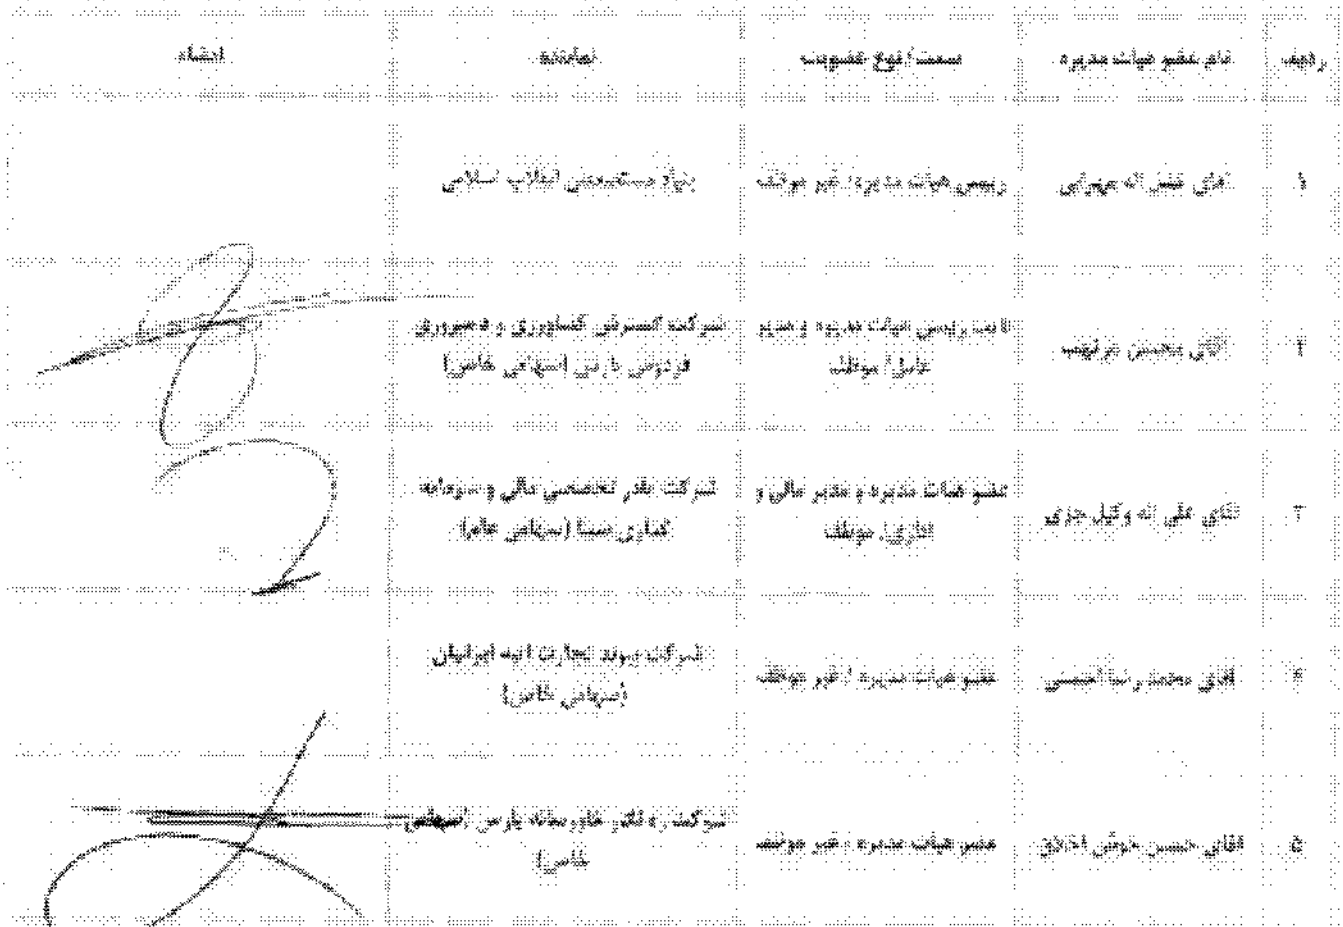 ردیف نام عضو هیأت مدیره سمت / نوع عضویت نماینده امضاء
۱ آقای فضل اله مهرابی رییس هیأت مدیره / غیر موظف بنیاد مستضعفان انقلاب اسلامی
۲ آقای محسن نایب رییس هیأت مدیره و مدیر شرکت گسترش کشاورزی و دامپروری
عامل / موظف فردوس پارس (سهامی خاص)
۳ آقای علی اله وکیل جزی عضو هیأت مدیره و مدیر مالی و شرکت مادر تخصصی مالی و سرمایه
اداری / موظف گذاری سینا (سهامی عام)
۴ آقای محمد رضا عضو هیأت مدیره / غیر موظف شرکت پیوند تجارت آتیه ایرانیان
(سهامی خاص)
۵ آقای حسین خوش اخلاق عضو هیأت مدیره / غیر موظف شرکت زه کلدر خاورمیانه پارس (سهامی
خاص)